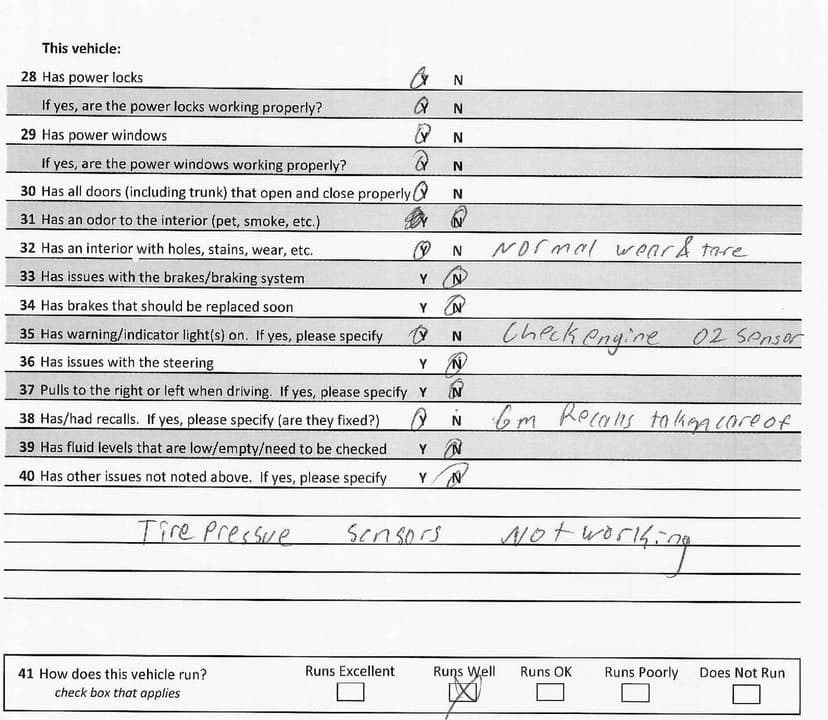 This vehicle:
28 Has power locks Y N
If yes, are the power locks working properly? Y N
29 Has power windows Y N
If yes, are the power windows working properly? Y N
30 Has all doors (including trunk) that open and close properly Y N
31 Has an odor to the interior (pet, smoke, etc.) Y N
32 Has an interior with holes, stains, wear, etc. Y N Normal wear & tare
33 Has issues with the brakes/braking system Y N
34 Has brakes that should be replaced soon Y N
35 Has warning/indicator light(s) on. If yes, please specify Y N Check engine O2 sensor
36 Has issues with the steering Y N
37 Pulls to the right or left when driving. If yes, please specify Y N
38 Has/had recalls. If yes, please specify (are they fixed?) Y N Gm Recalls taken care of
39 Has fluid levels that are low/empty/need to be checked Y N
40 Has other issues not noted above. If yes, please specify Y N
Tire Pressue Sensors Not working
41 How does this vehicle run? Runs Excellent Runs Well Runs OK Runs Poorly Does Not Run
check box that applies